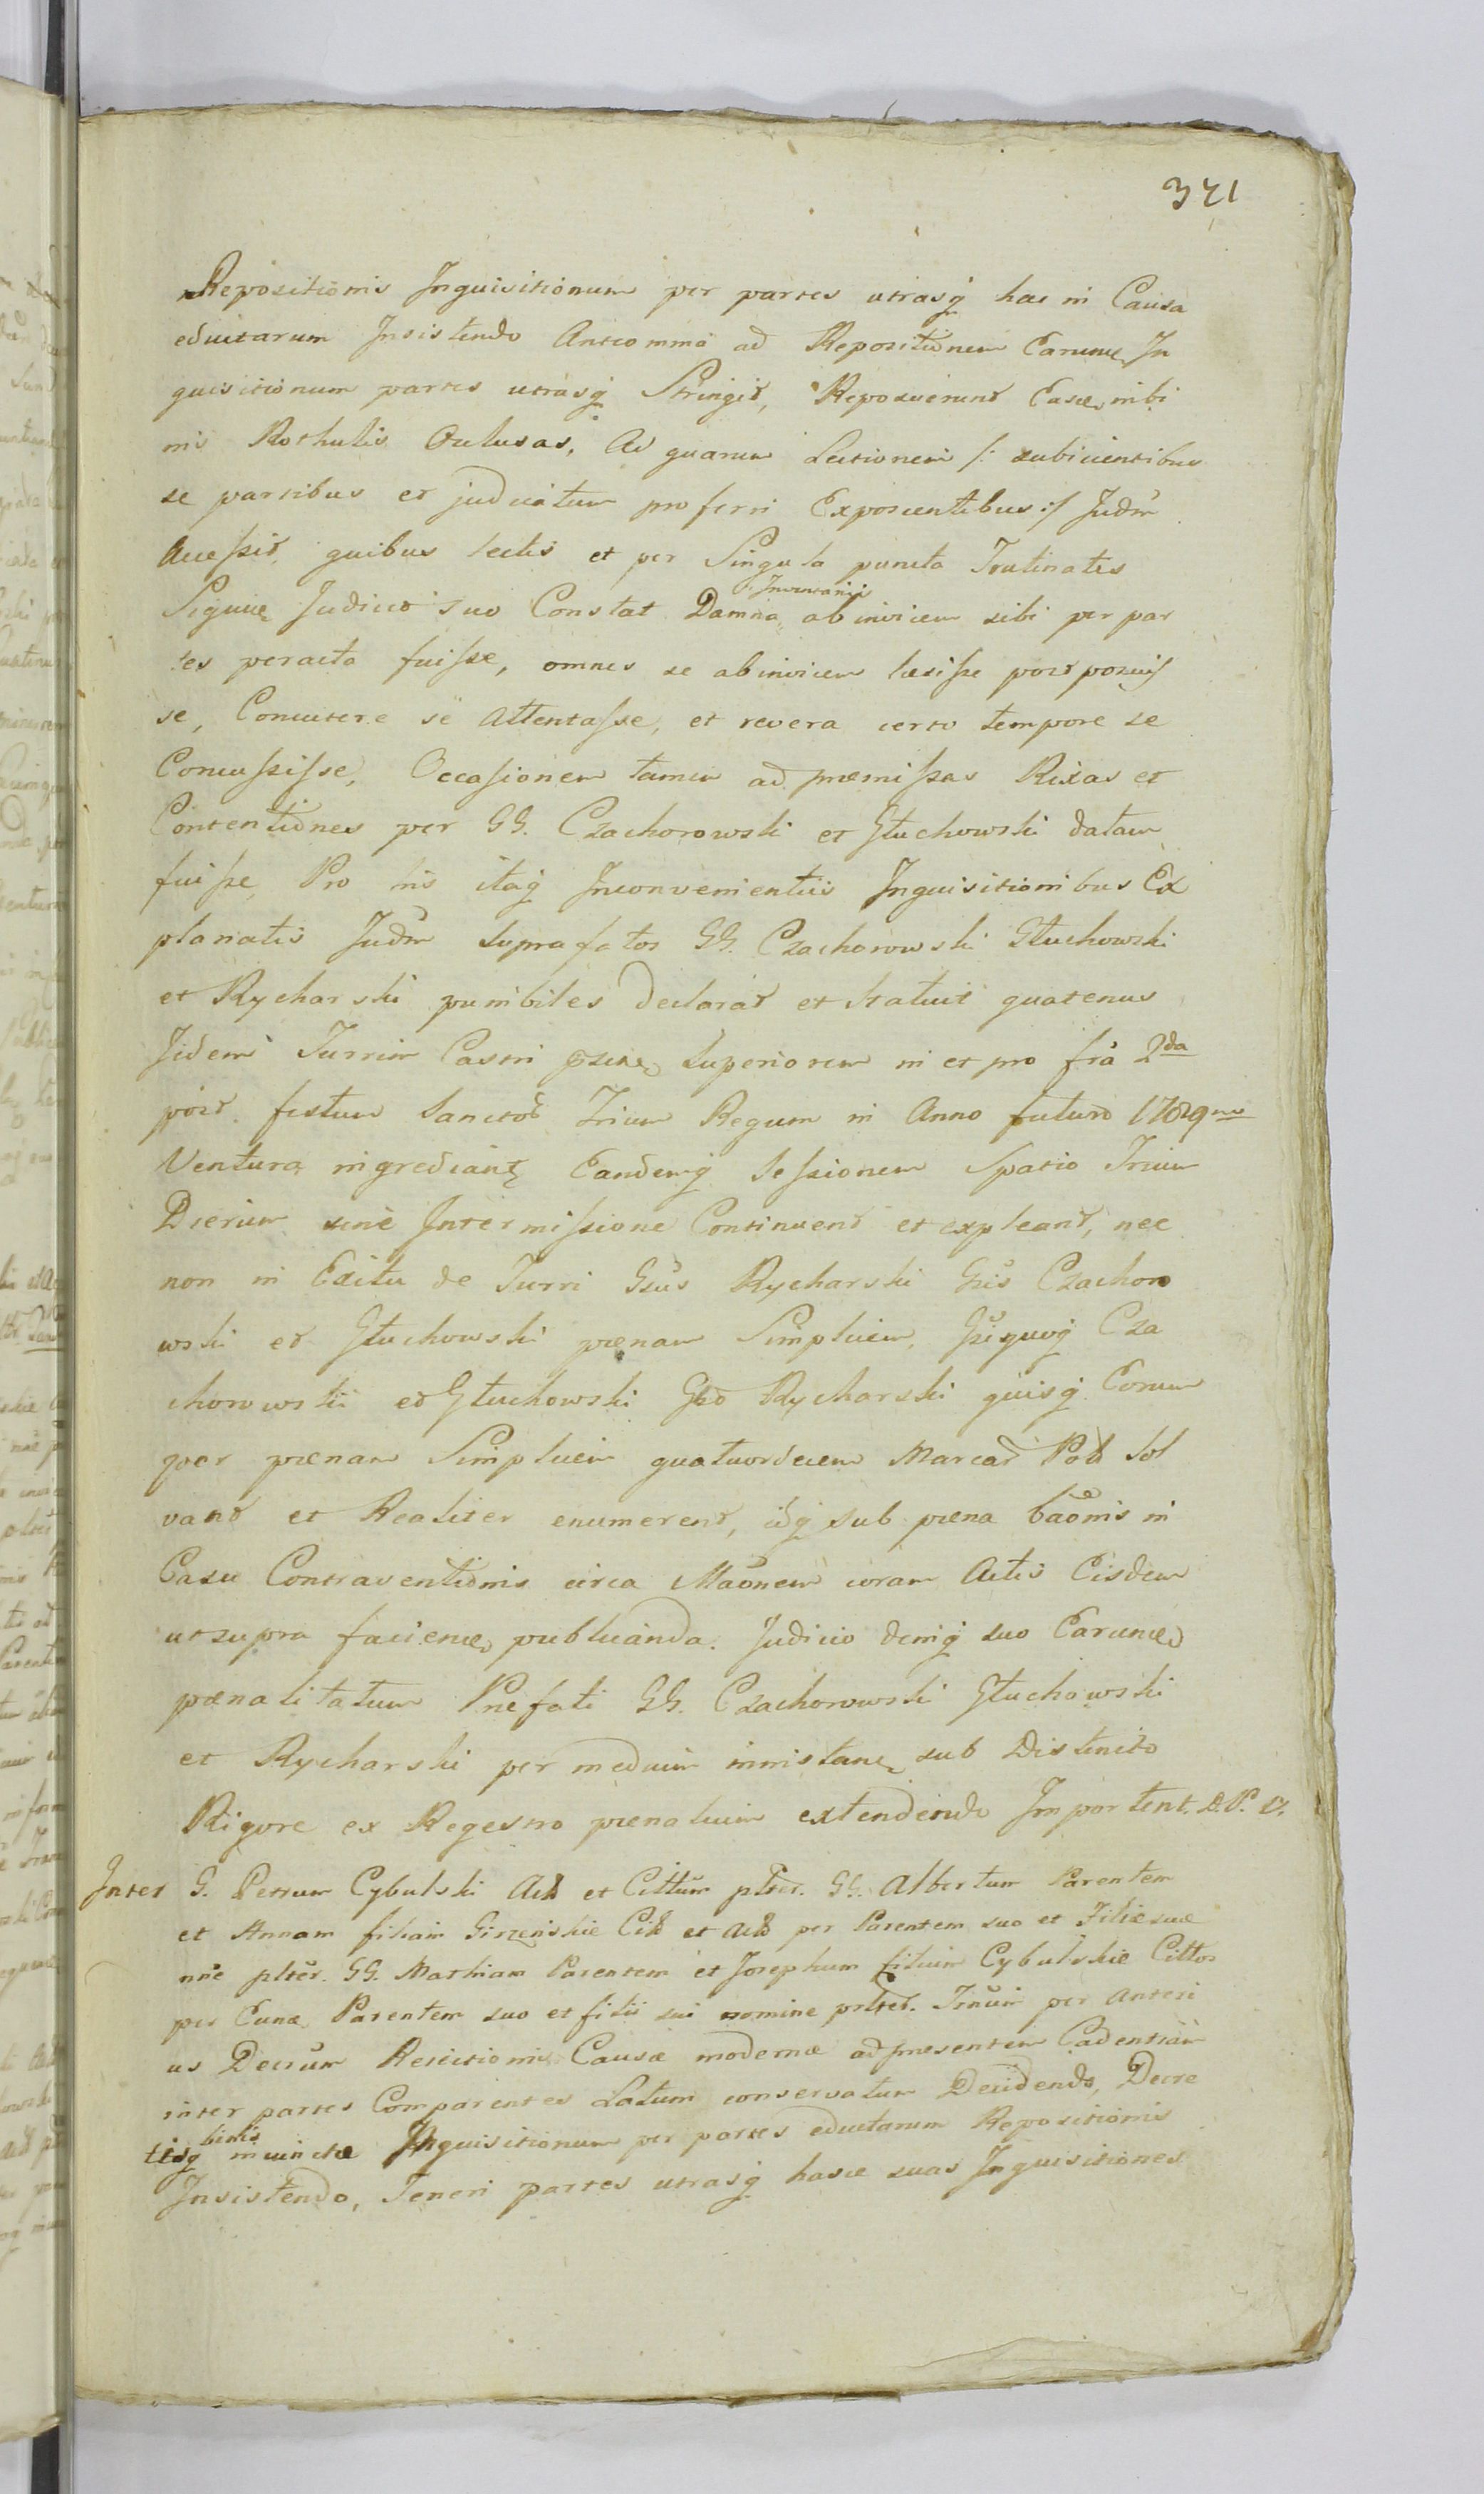 371
Repositionis Inquisitionum per partes utrasq hac in Causa
eductarum Insistendo Anteomnia ad Repositionem Earunde In
quisitionum partes utrasq Stringit, Reposuerunt Easde
Rothulis Oclusas, Ad quarum Lectionem /: subicientibus
se partibus et judicatum proferri Exposcentibus :/ Judm
Accessit, quibus lectis et per Singula puncta Trutinatis
Siquide Judicio suo Constat Damna Inventarii ab invicem sibi per par
tes peracta fuisse, omnes se ab invicem læsisse post posuis
se, Concutere se Attentasse, et revera certo tempore se
Concussisse, Occasionem tamen ad præmissas Rixas et
Contentiones per GG. Czachorowski et Głuchowski datam
fuisse, Pro his itaq Inconvenientiis Inquisitionibus Ex
planatis Judm suprafatos GG. Czachorowski Głuchowski
et Rycharski punibiles declarat et statuit quatenus
Iidem Turrim Castri superiorem in et pro fria 2da
post festum Sanctor Trium Regum in Anno futuro 1789no
Ventura ingrediant Eandemq Sessionem Spatio Trium
Dierum sine Intermissione Continuent et expleant, nec
non in Exitu de Turri Gsus Rycharski Gsis Czachoro
wski et Głuchowski pœnam Simplicem, Gsiquoq Cza
chorowski et Głuchowski Gso Rycharski quisq Eorum
quor pœnam Simplicem quatuordecem Marcar Pol Sol
vant et Realiter enumerent, idq sub pœna baonis in
Casu Contraventionis circa Maonem coram Actis Eisdem
ut supra faciend publicanda. Judicio deniq suo Earunde
pœnalitatum Præfati GG. Czachorowski Głuchowski
et Rycharski per medium sub Districto
Rigore ex Regestro pœnalium extendendo Importent. D. P. V.
Inter G. Petrum Cybulski Act et Cittum ptser. GG. Albertum Parentem
et Annam filiam Girzenskie Cit et Act per Parentem suo et Filiæ suæ
nne ptser. GG. Mathiam Parentem et Josephum filium Cybulskie Cittos
per Eund Parentem suo et filii sui nomine Trium per Anteri
us Decrum Reiectionis Causæ modernæ ad præsentem Cadentiam
inter partes Comparentes Latum conservatum Decidendo, Decre
tisq binis iniunctæ Inquisitionum per partes eductarum Repositionis
Insistendo, Teneri partes utrasq hasce suas Inquisitiones